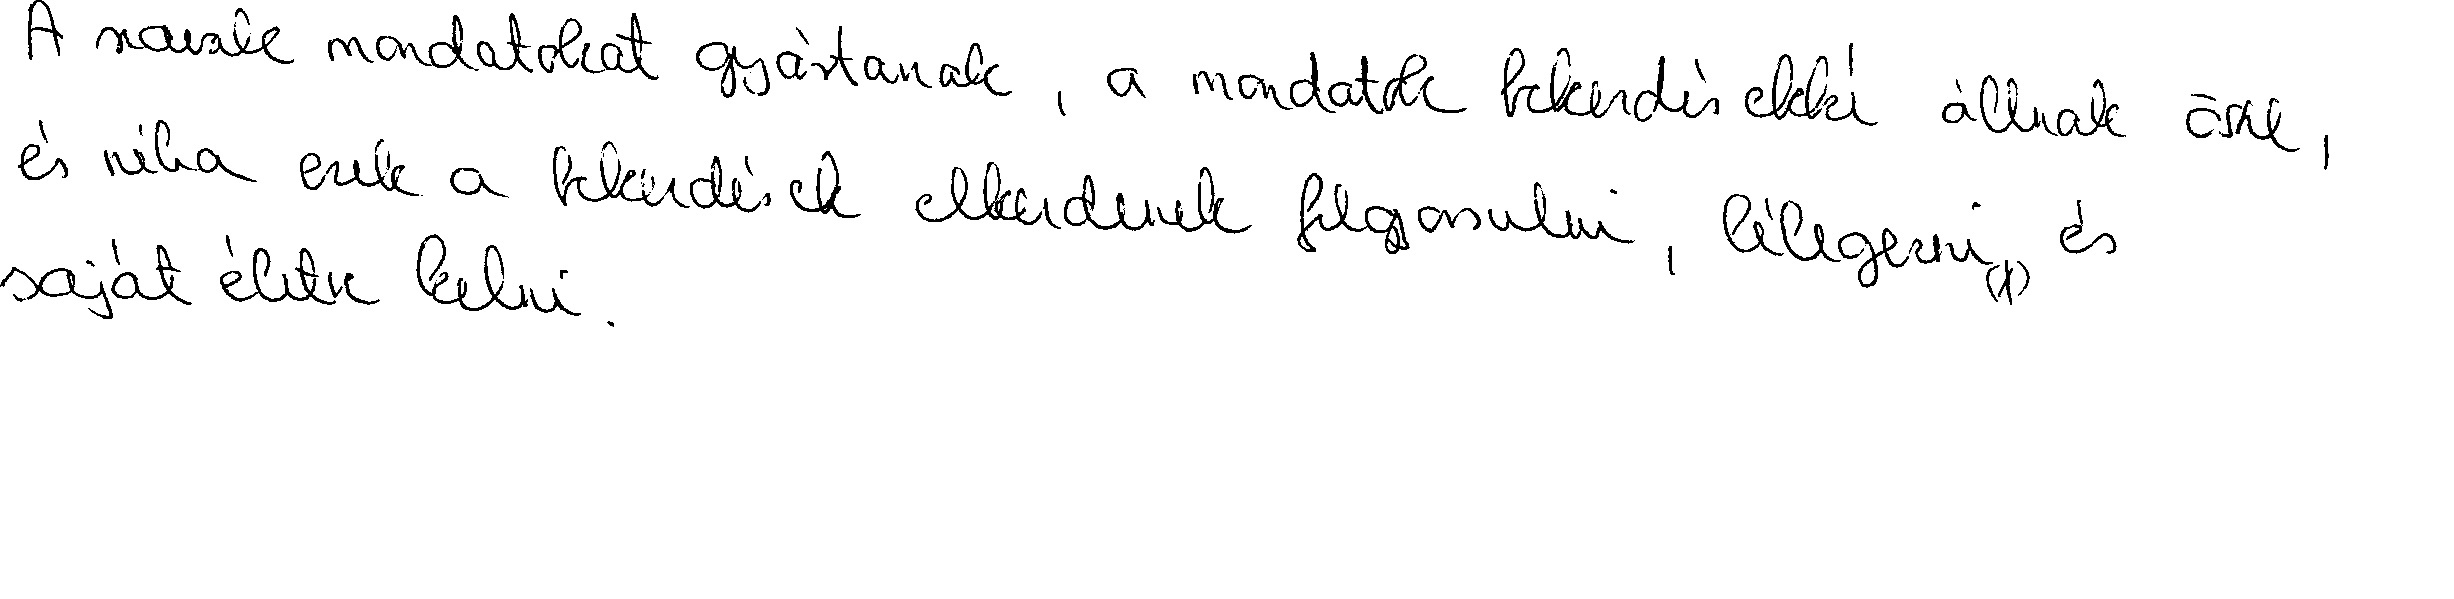 A szavak mondatokat gyártanak, a mondatok bekezdésekké állnak össze,
és néha ezek a bekezdések elkezdenek felgyorsulni, lélegezni, és
saját életre kelni.